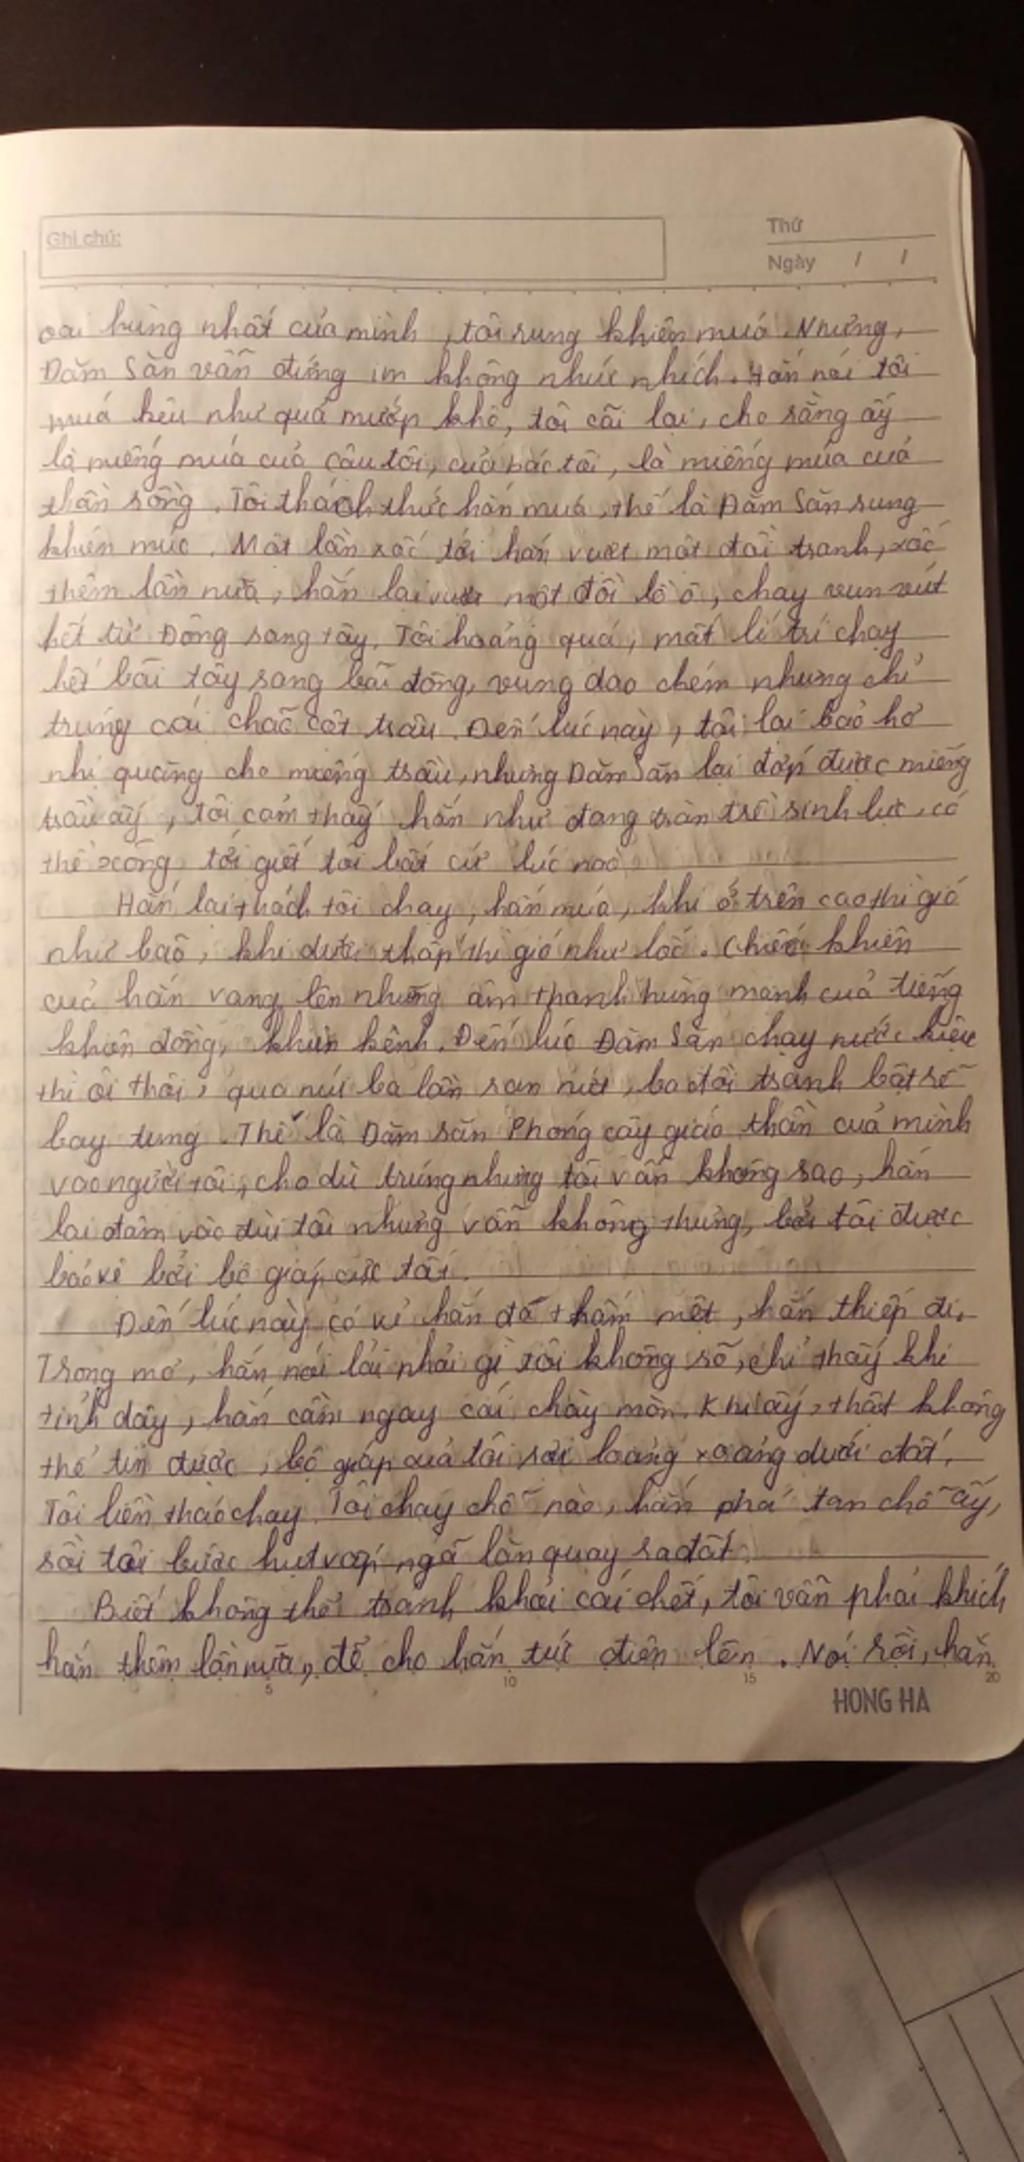 Ghi chú:
Thứ
Ngày / /
oai hùng nhất của mình, tôi rung khiên múa. Nhưng,
Đăm Săn vẫn đứng im không nhúc nhích. Hắn nói tôi
múa kêu như quả mướp khô, tôi cãi lại, cho rằng ấy
là miếng múa của cậu tôi, của bác tôi, là miếng múa của
thần rồng. Tôi thách thức hắn múa, thế là Đăm Săn rung
khiên múc. Một lần xốc tới hắn vượt một đồi tranh, xốc
thêm lần nữa, hắn lại vượt một đồi lồ ô, chạy vun vút
hết từ Đông sang tây. Tôi hoảng quá, mất lí trí chạy
hết bãi tây sang bãi đông, vung dao chém nhưng chỉ
trúng cái chão cột trâu. Đến lúc này, tôi lại bảo hơ
nhị quăng cho miếng trầu, nhưng Đăm Săn lại đớp được miếng
trầu ấy, tôi cảm thấy hắn như đang tràn trề sinh lực, có
thể xông tới giết tôi bất cứ lúc nào
Hắn lại thách tôi chạy, hắn múa, khi ở trên cao thì gió
như bão, khi dưới thấp thì gió như lốc. Chiếc khiên
của hắn vang lên những âm thanh hùng mạnh của tiếng
khiên đồng, khiên kênh. Đến lúc Đăm Săn chạy nước kiệu
thì ôi thôi, quả núi ba lần rạn nứt, ba đồi tranh bật rễ
bay tung. Thế là Đăm săn Phóng cây giáo thần của mình
vào người tôi, cho dù trúng nhưng tôi vẫn không sao, hắn
lại đâm vào đùi tôi nhưng vẫn không thủng, bởi tôi được
bảo vệ bởi bộ giáp cực tốt.
Đến lúc này có vẻ hắn đã thấm mệt, hắn thiếp đi,
Trong mơ, hắn nói lải nhải gì tôi không rõ, chỉ thấy khi
tỉnh dậy, hắn cầm ngay cái chày mòn. Khi ấy, thật không
thể tin được, bộ giáp của tôi rơi loảng xoảng dưới đất.
Tôi liền tháo chạy. Tôi chạy chỗ nào, hắn phá tan chỗ ấy,
rồi tôi bước hụt ngã lăn quay ra đất.
Biết không thể tránh khỏi cái chết, tôi vẫn phải khích
hắn thêm lần nữa, để cho hắn tức điên lên. Nói rồi, hắn
5 10 15 20
HONG HA